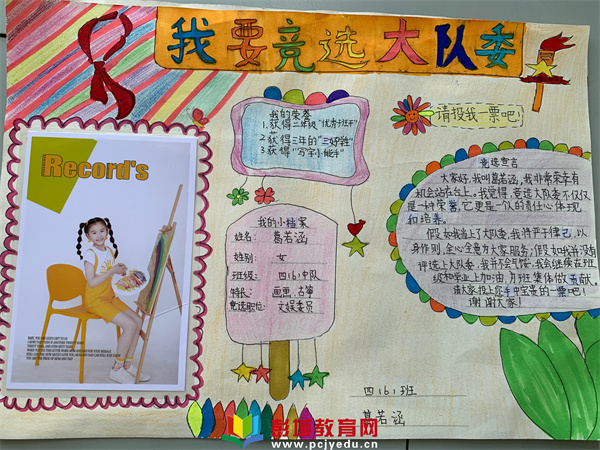 我要竞选大队委
我的荣誉
1.获得二年级"优秀班干"
2.获得三年的"三好学生"
3.获得"写字小能手"
请投我一票吧!
竞选宣言
大家好,我叫葛若涵,我非常荣幸有
机会站在台上。我觉得,竞选大队委不仅仅
是一种荣誉,它更是一份的责任心体现
和培养。
假如我当上了大队委,我将严于律己,以
身作则,全心全意为大家服务;假如我将没有
评选上大队委,我并不会气馁,我会继续在班
级和学业上加油,为班集体做贡献。
请大家投上你手中宝贵的一票吧!
谢谢大家!
Record's
我的小档案
姓名: 葛若涵
性别: 女
班级: 四(6)中队
特长: 画画、古筝
竞选职位: 文娱委员
四(6)班
葛若涵
彭城教育网
www.pcjyedu.cn